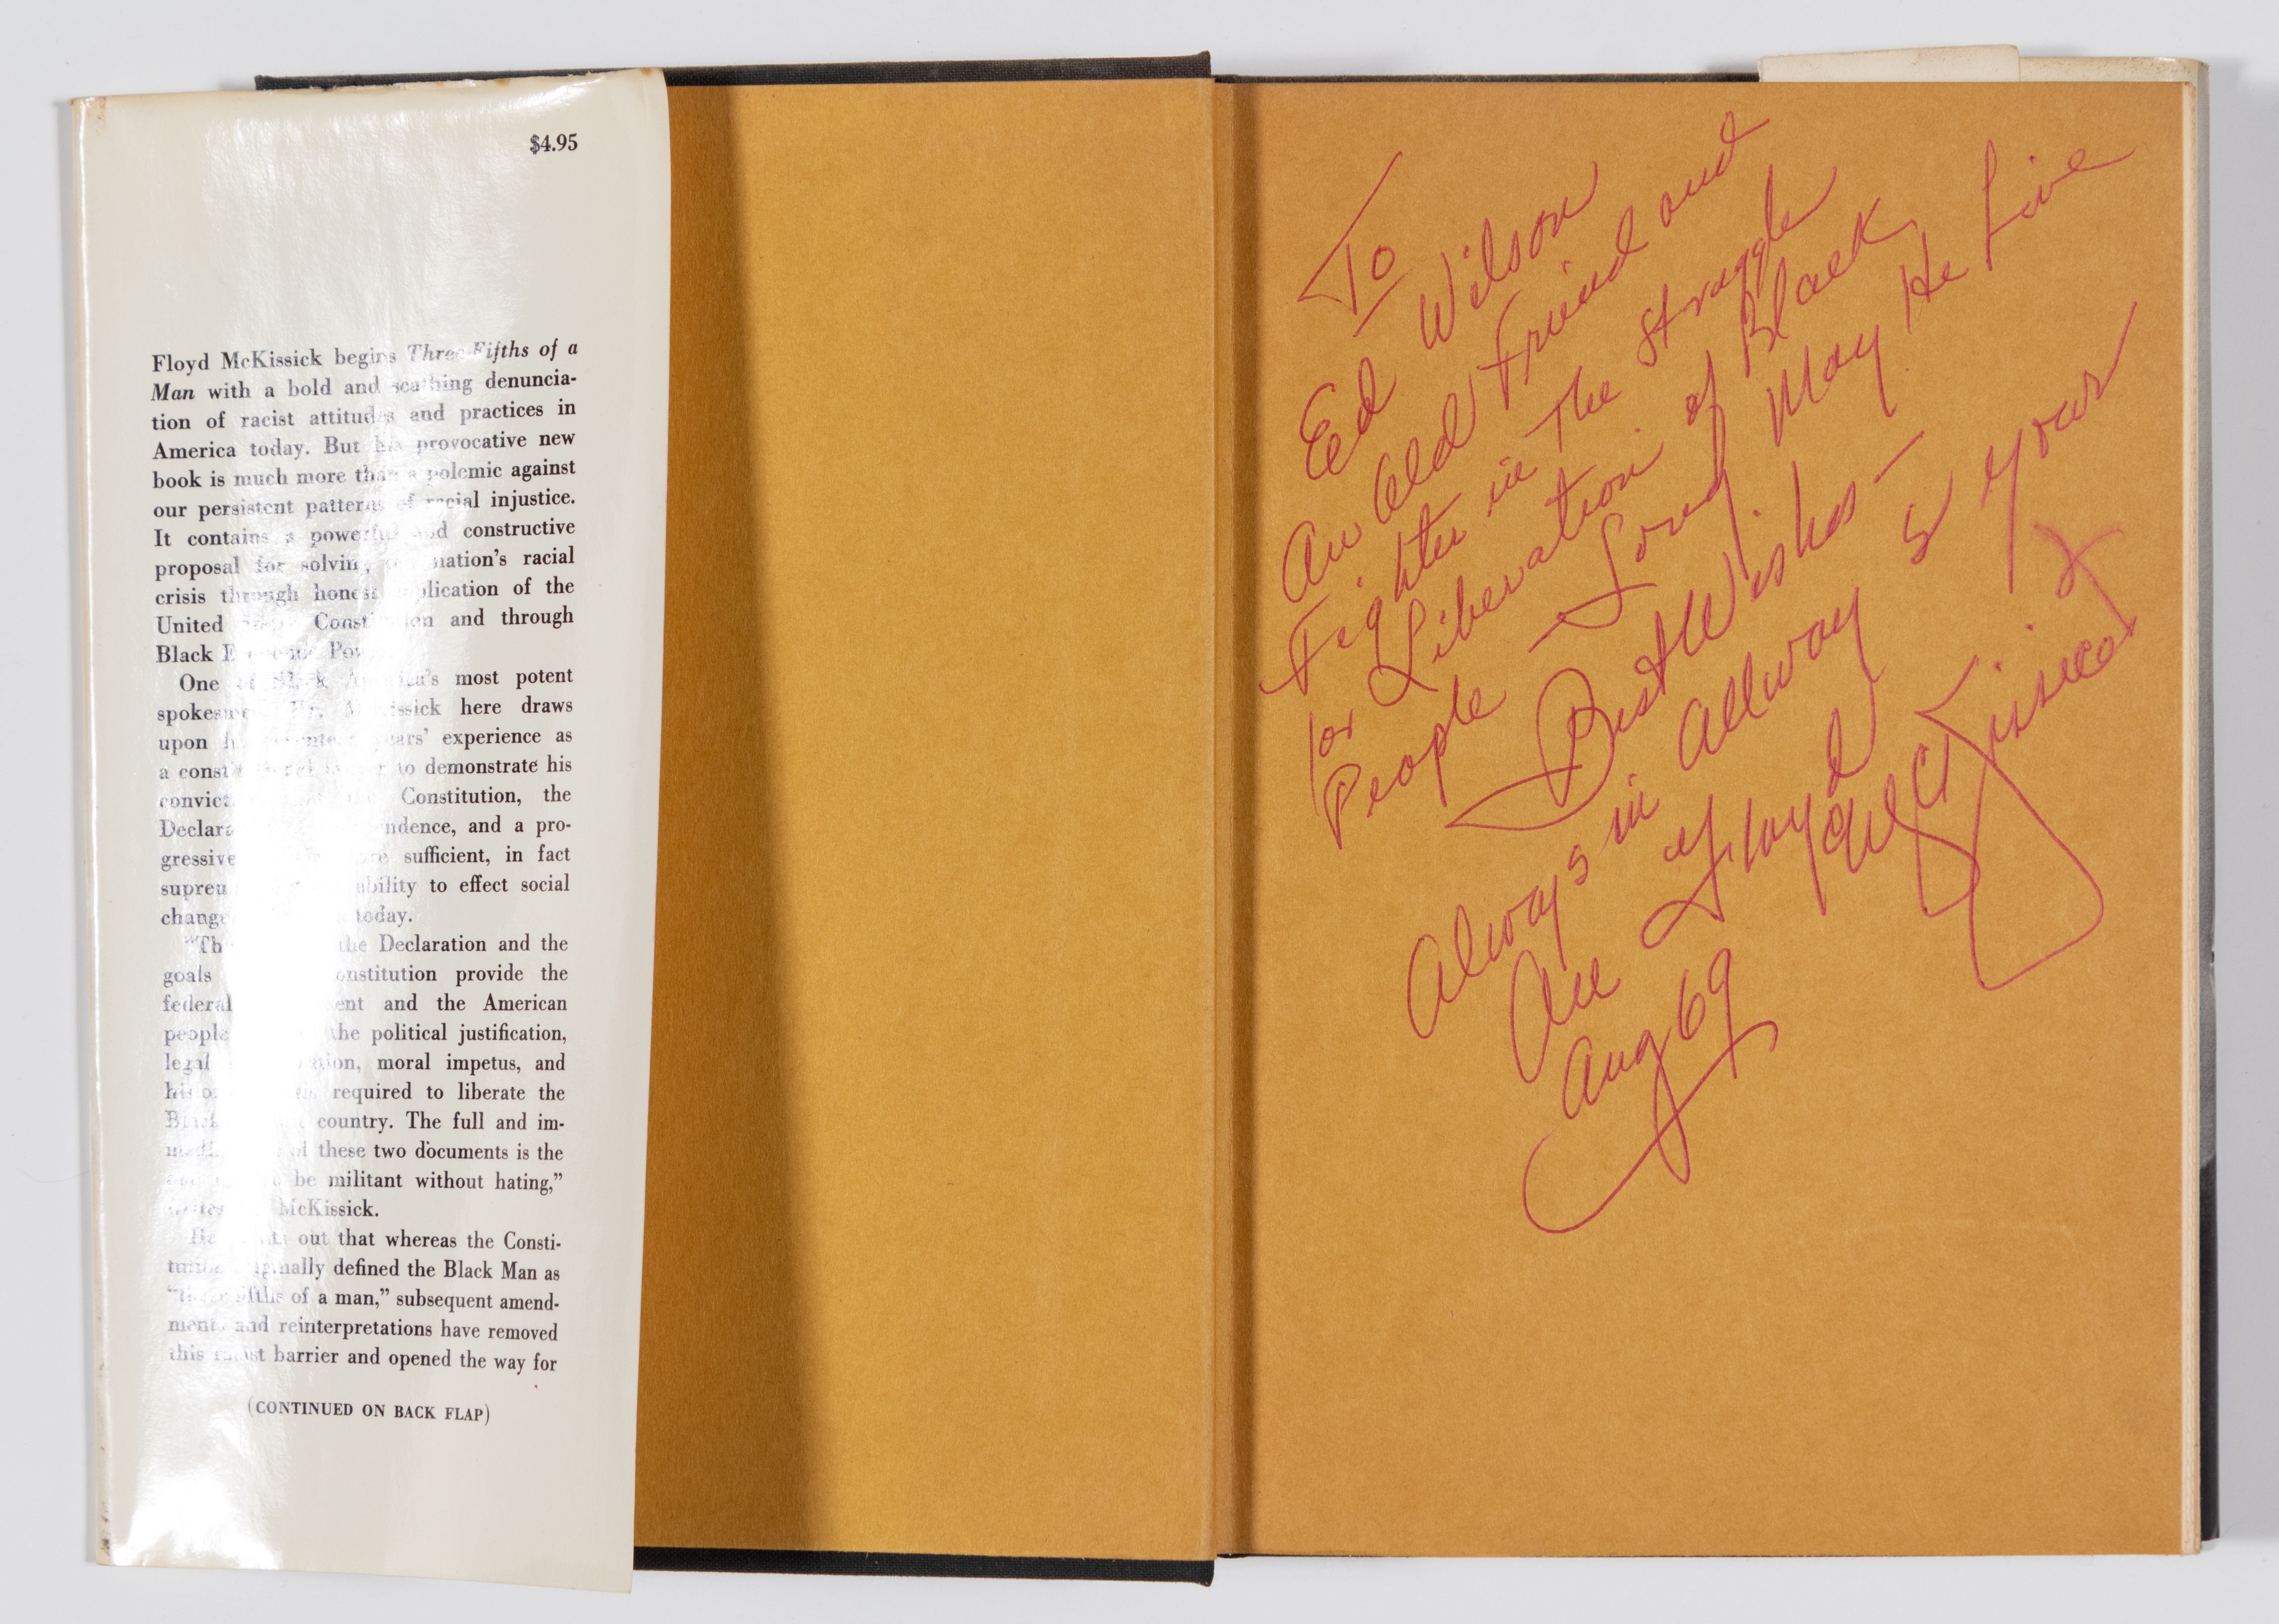 $4.95
Floyd McKissick begins Three-Fifths of a
Man with a bold and scathing denuncia-
tion of racist attitudes and practices in
America today. But his provocative new
book is much more than a polemic against
our persistent patterns of racial injustice.
It contains a powerful and constructive
proposal for solving nation's racial
crisis through honest application of the
United Constitution and through
Black Economic Power
One of Black America's most potent
spokesmen, Mr. McKissick here draws
upon years' experience as
a constitutional lawyer to demonstrate his
Constitution, the
and a pro-
gressive sufficient, in fact
ability to effect social
change today.
the Declaration and the
goals Constitution provide the
federal and the American
people the political justification,
legal moral impetus, and
required to liberate the
country. The full and im-
of these two documents is the
be militant without hating,"
McKissick.
out that whereas the Consti-
originally defined the Black Man as
"three-fifths of a man," subsequent amend-
ments and reinterpretations have removed
this racist barrier and opened the way for
(CONTINUED ON BACK FLAP)
To
Ed Wilson
An Old Friend and
Fighter in The Struggle
for Liberation of Black
People - Long May He Live
Best Wishes -
Always in Allways Your
Floyd McKissick
Aug 69